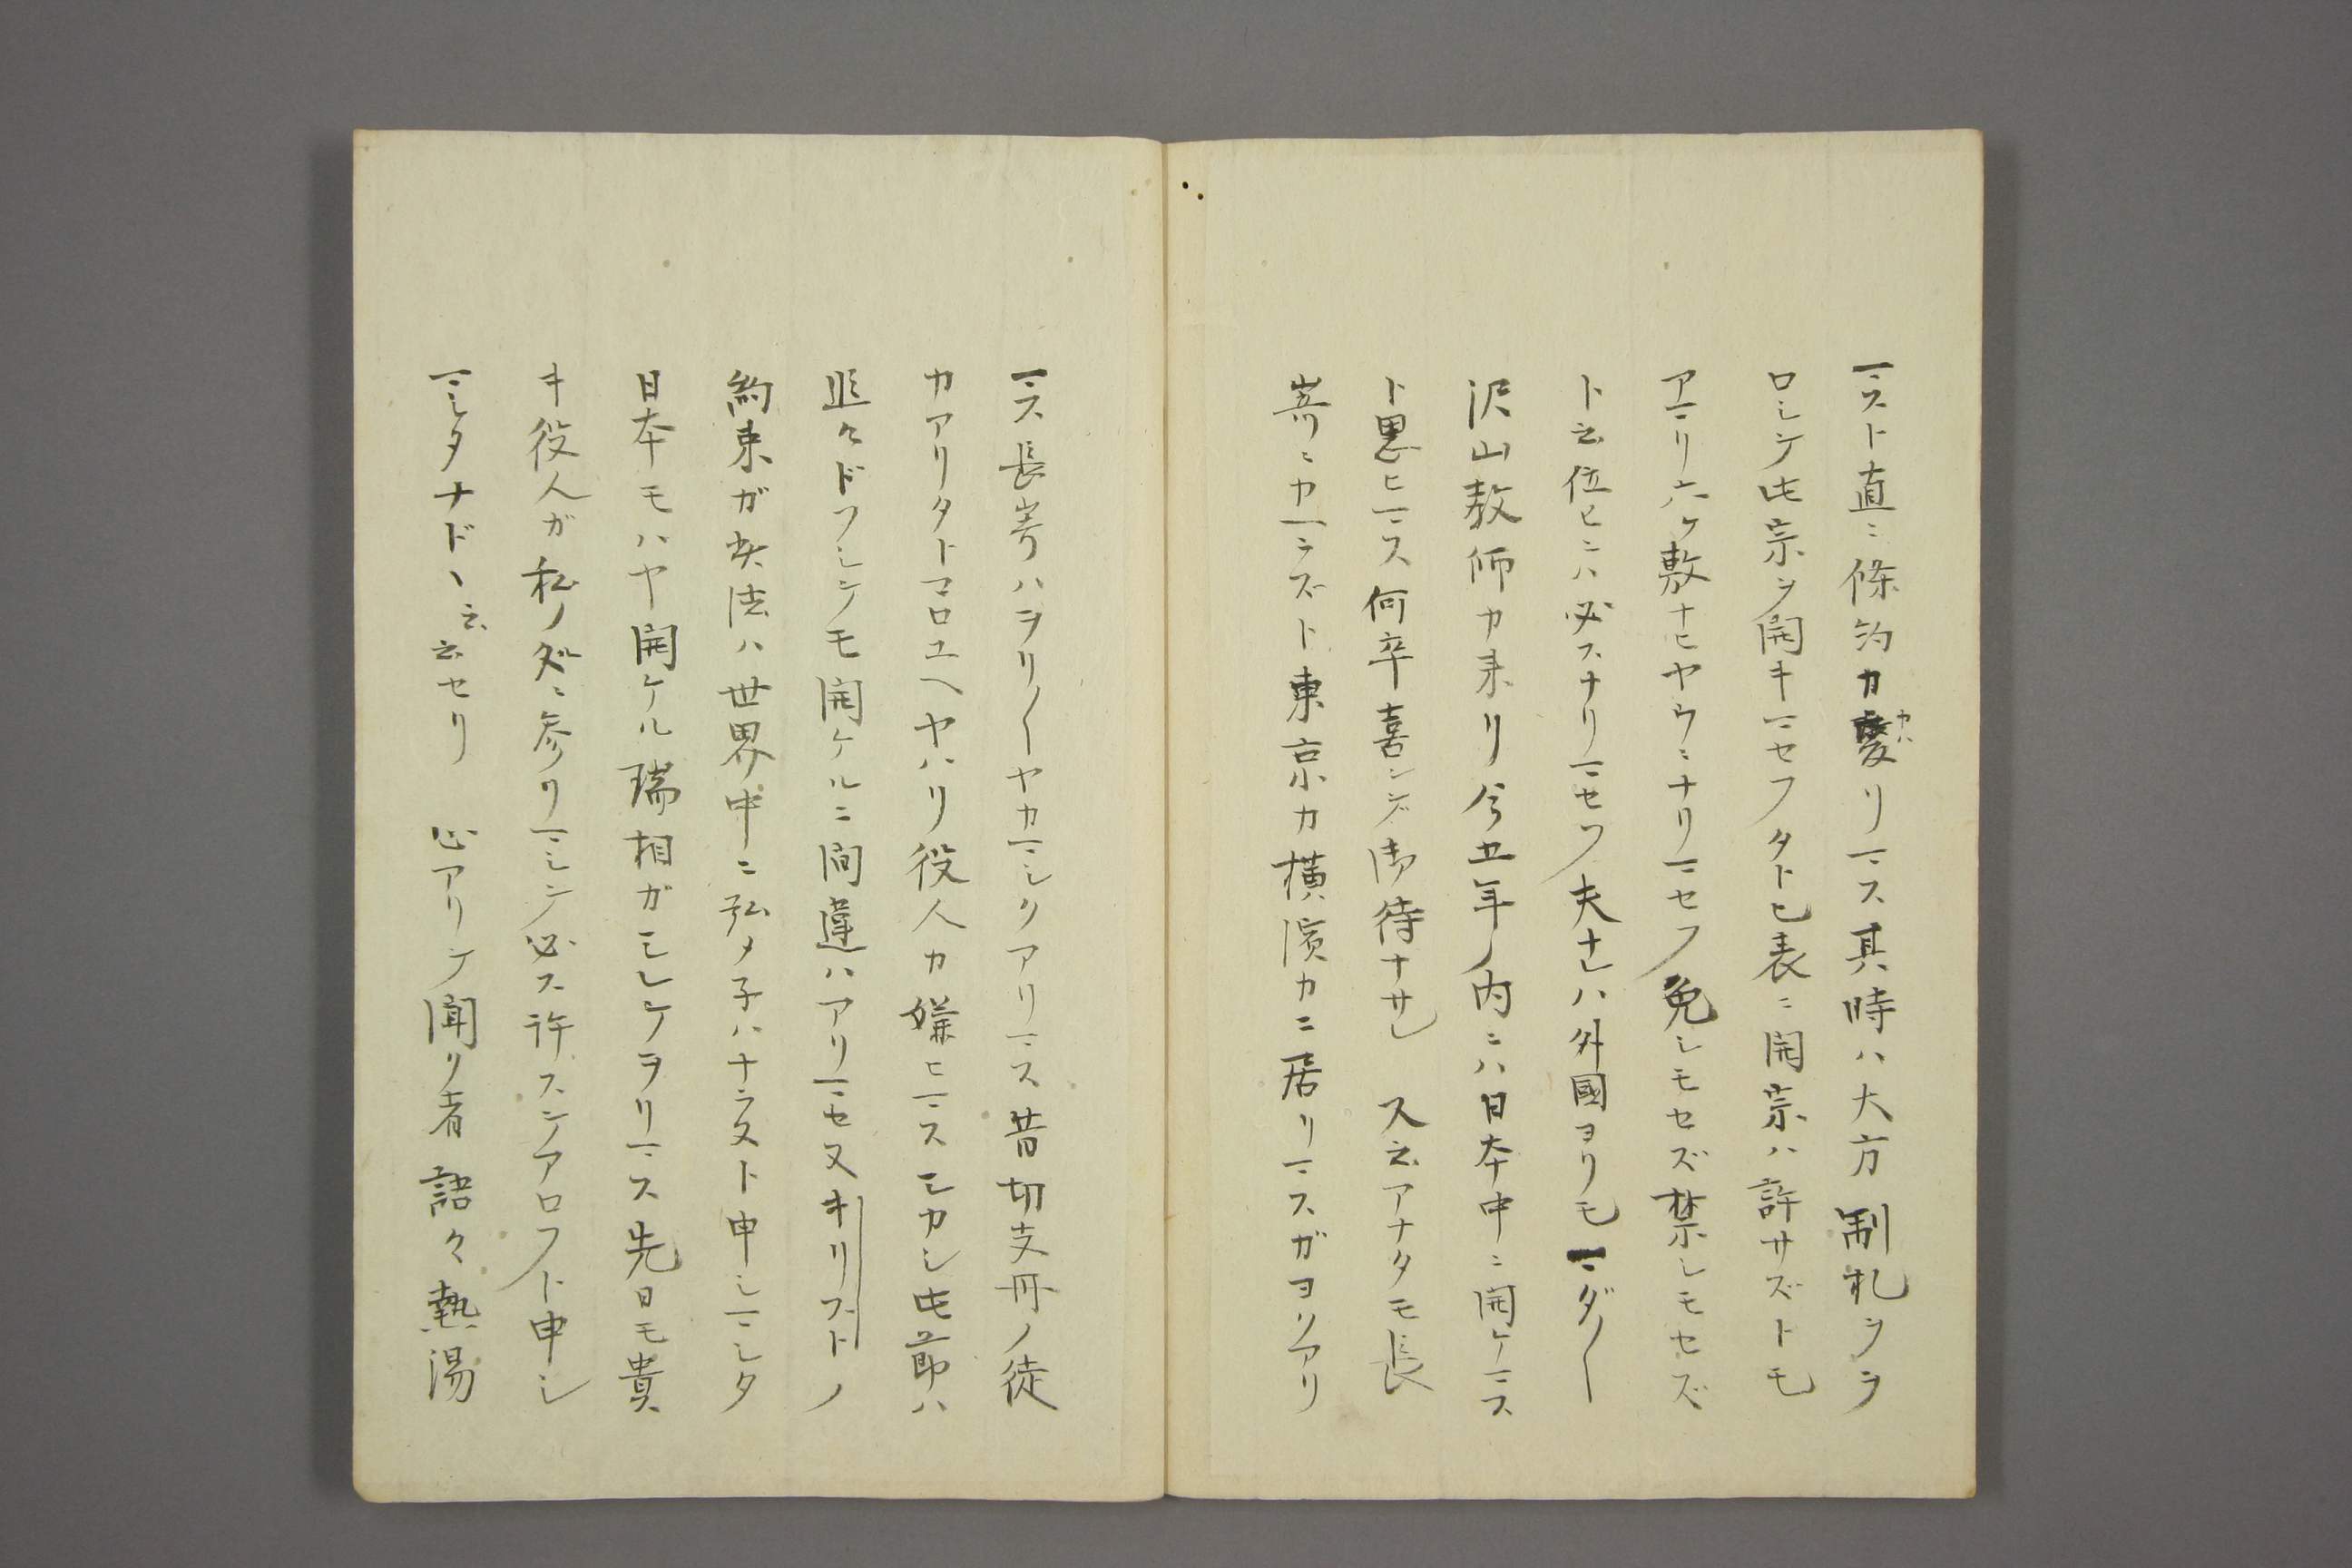 マスト直ニ條約カ變リマス其時ハ大方制札ヲヲ
カハ
ロシテ此宗ヲ開キマセフタトヒ表ニ開宗ハ許サズトモ
アマリ六ケ敷ナヒヤウニナリマセフ免シモセズ禁シモセズ
ト云位ヒニハ必スナリマセフ夫ナレハ外國ヨリモマダ〱
沢山教師カ来リ今五年ノ内ニハ日本中ニ開ケマス
ト思ヒマス何卒喜ンデ御待ナサレ 又云アナタモ長
嵜ニカヘラズト東京カ横濱カニ居リマスガヨリアリ
マス長嵜ハヲリ〱ヤカマシクアリマス昔切支丹ノ徒
カアリタトコロユヘヤハリ役人カ嫌ヒマスシカシ此節ハ
追々ドフシテモ開ケルニ間違ハアリマセヌキリストノ
約束ガ此法ハ世界中ニ弘メ子ハナラヌト申シマシタ
日本モハヤ開ケル瑞相ガミヘケヲリマス先日モ貴
キ役人ガ私ノ処ニ参リマシテ必ス許スンアロフト申シ
マシタナドヽ云云セリ 心アリテ聞ク者語々熱湯